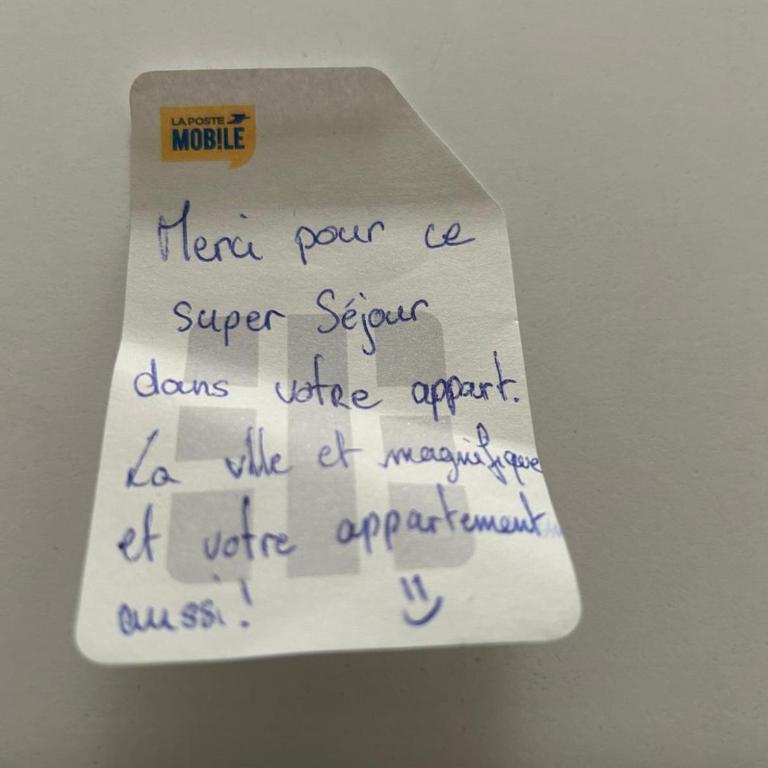 LA POSTE
MOBILE
Merci pour ce
super Séjour
dans votre appart.
La ville et magnifique
et votre appartement
aussi!